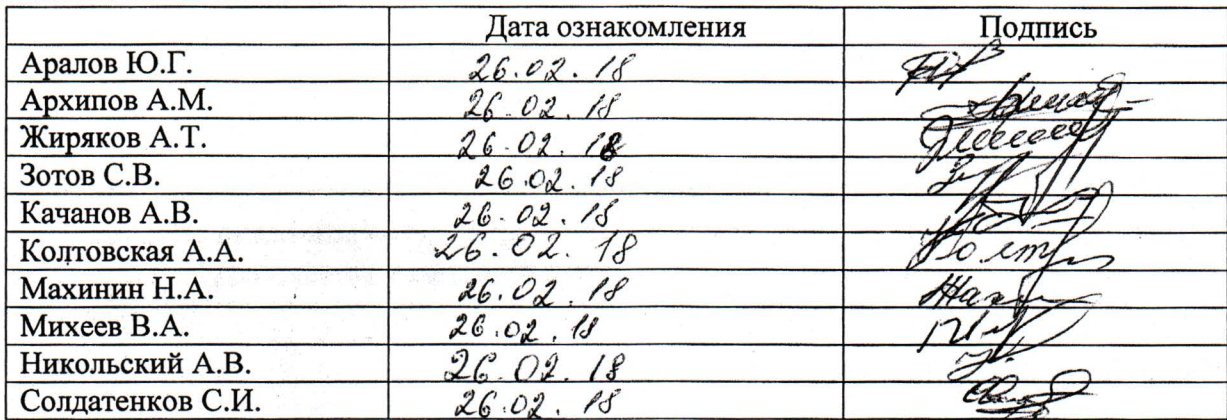 Дата ознакомления Подпись
Аралов Ю.Г. 26.02.18
Архипов А.М. 26.02.18
Жиряков А.Т. 26.02.18
Зотов С.В. 26.02.18
Качанов А.В. 26.02.18
Колтовская А.А. 26.02.18
Махинин Н.А. 26.02.18
Михеев В.А. 26.02.18
Никольский А.В. 26.02.18
Солдатенков С.И. 26.02.18